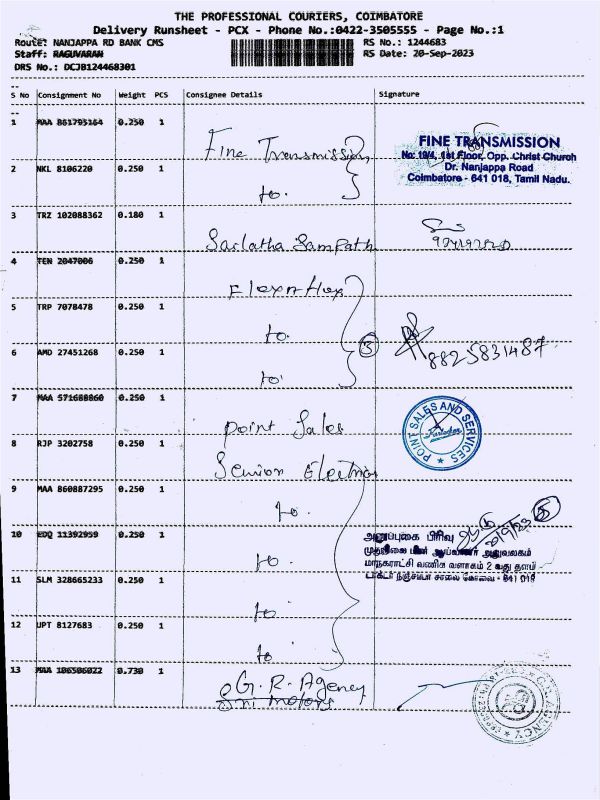 THE PROFESSIONAL COURIERS, COIMBATORE
Delivery Runsheet - PCX - Phone No.:0422-3505555 - Page No.:1
Route: NANJAPPA RD BANK CMS RS No.: 1244683
Staff: RAGUVARAN RS Date: 20-Sep-2023
DRS No.: DCJB124468301
S No Consignment No Weight PCS Consignee Details Signature
1 MAA 861793164 0.250 1 Fine Transmission
FINE TRANSMISSION
No: 19/4, 1st Floor, Opp. Christ Church
Dr. Nanjappa Road
Coimbatore - 641 018, Tamil Nadu.
2 NKL 8106220 0.250 1 to.
3 TRZ 102088362 0.180 1 Sarlatha Sampath
4 TEN 2047006 0.250 1
5 TRP 7078478 0.250 1 to.
6 AMD 27451268 0.250 1 to.
3
8825831487
7 MAA 571688860 0.250 1 Point Sales
POINT SALES AND SERVICES
8 RJP 3202758 0.250 1 Senion Electrion
9 MAA 860887295 0.250 1 to.
10 EDQ 11392959 0.250 1 to.
அனுப்புகை பிரிவு
முதன்மை மின் ஆய்வாளர் அலுவலகம்
மாநகராட்சி வணிக வளாகம் 2 வது தளம்
டாக்டர் நஞ்சப்பா சாலை கோவை - 641 018
11 SLM 328665233 0.250 1 to
12 UPT 8127683 0.250 1 to
13 MAA 106506022 0.730 1 G.R. Agency
Sri Motors